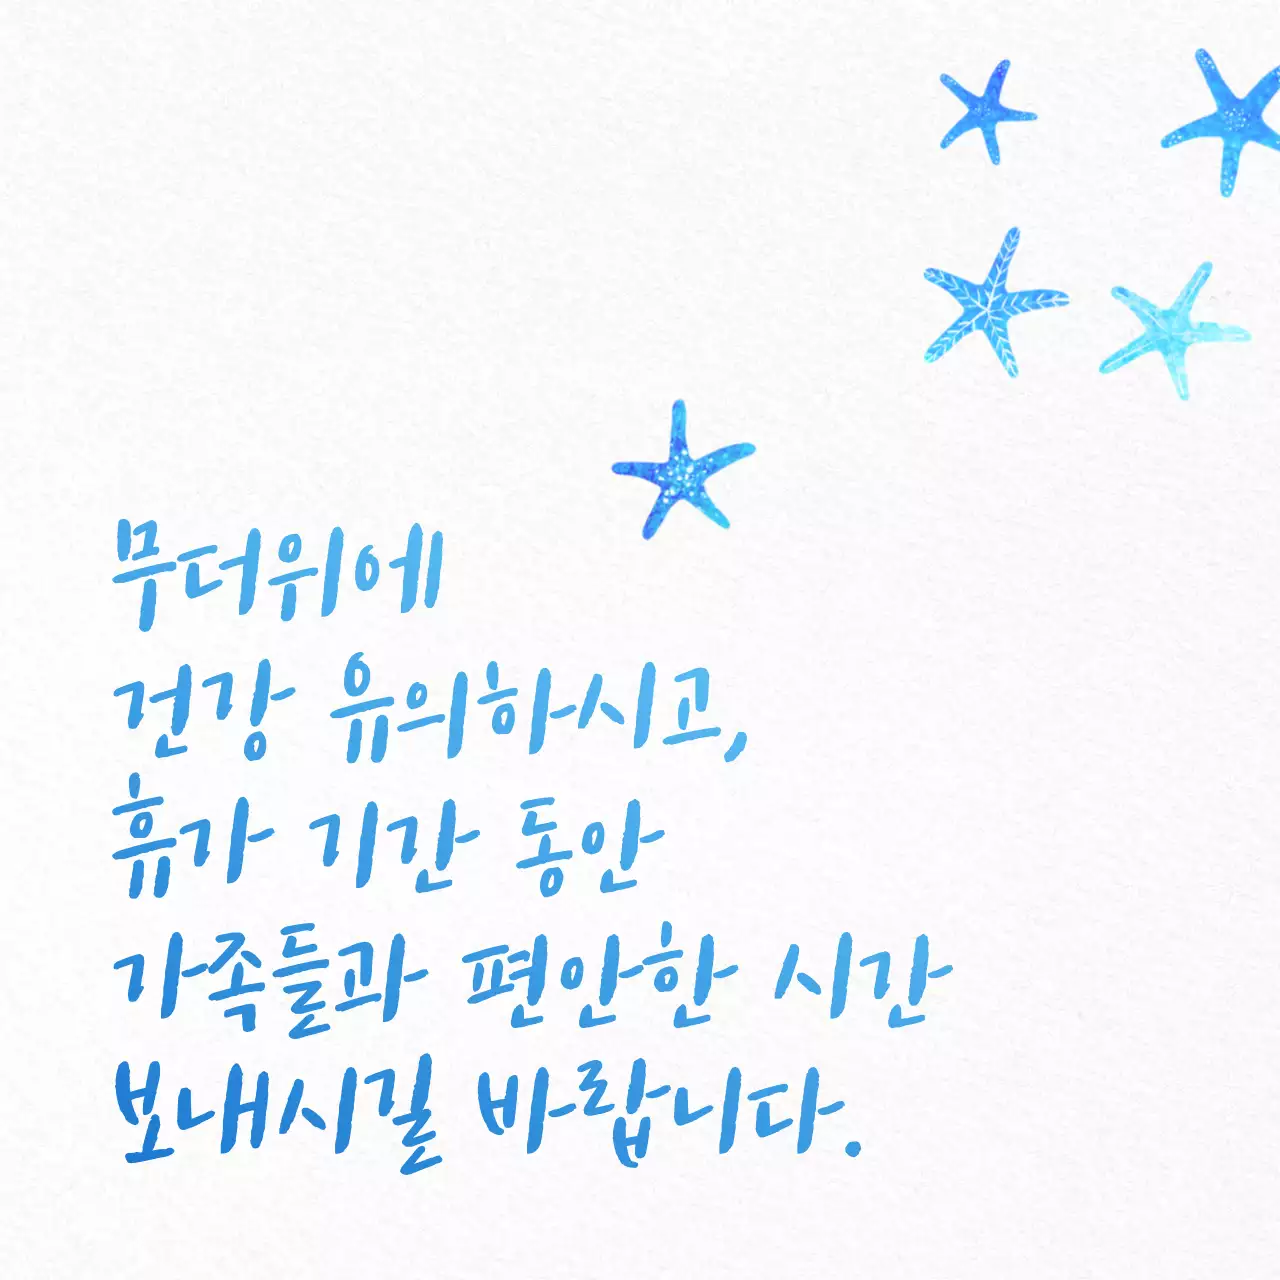 무더위에
건강 유의하시고,
휴가 기간 동안
가족들과 편안한 시간
보내시길 바랍니다.